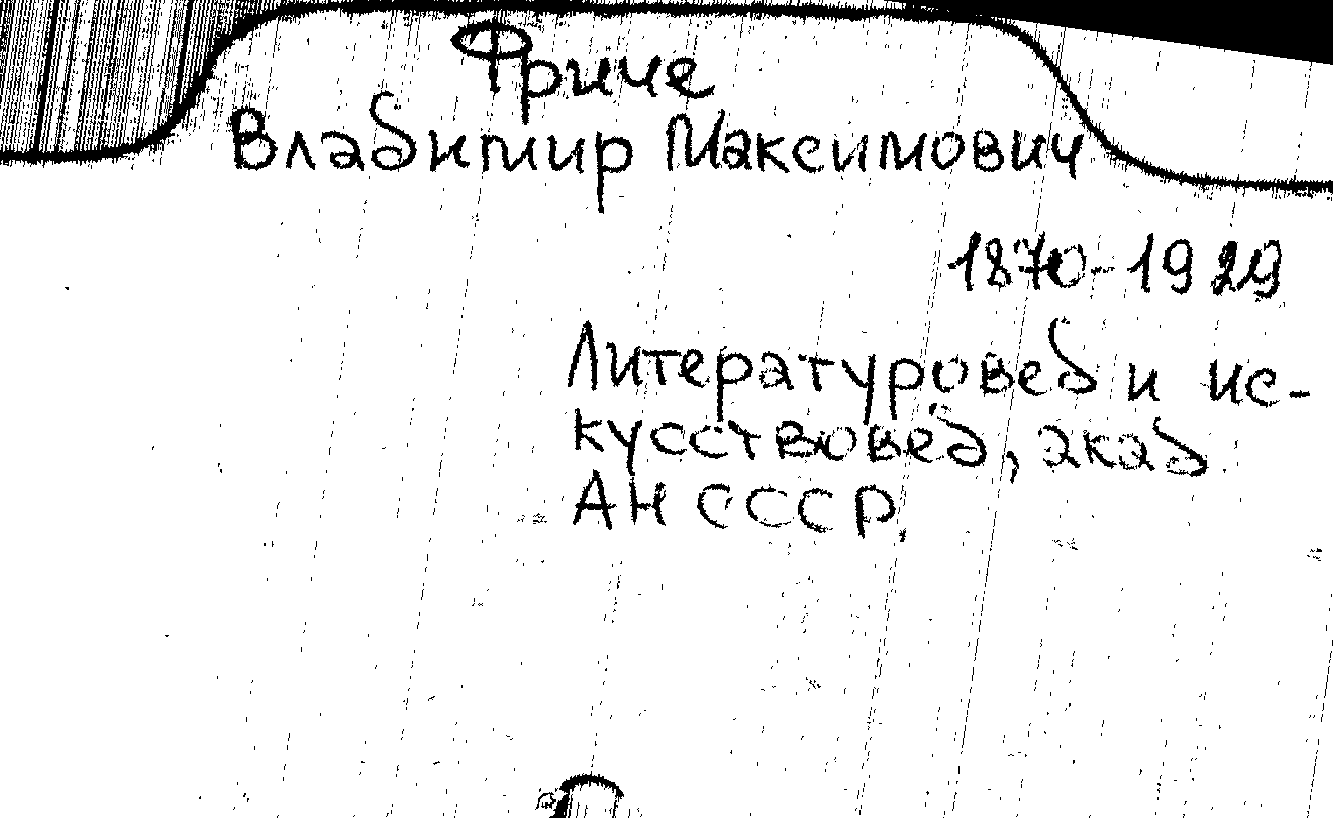 Фриче
Владимир Максимович
1870-1929
Литературовед и ис-
кусствовед, акад
АН СССР.